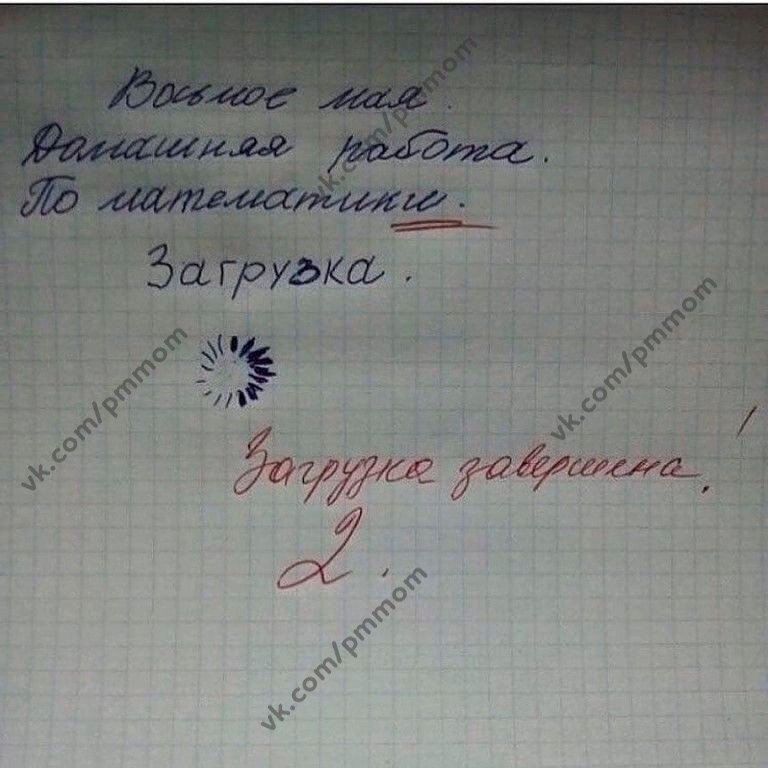 Восьмое мая.
Домашняя работа.
По математики.
Загрузка.
Загрузка завершена!
2.
vk.com/pmmom
vk.com/pmmom
vk.com/pmmom
vk.com/pmmom